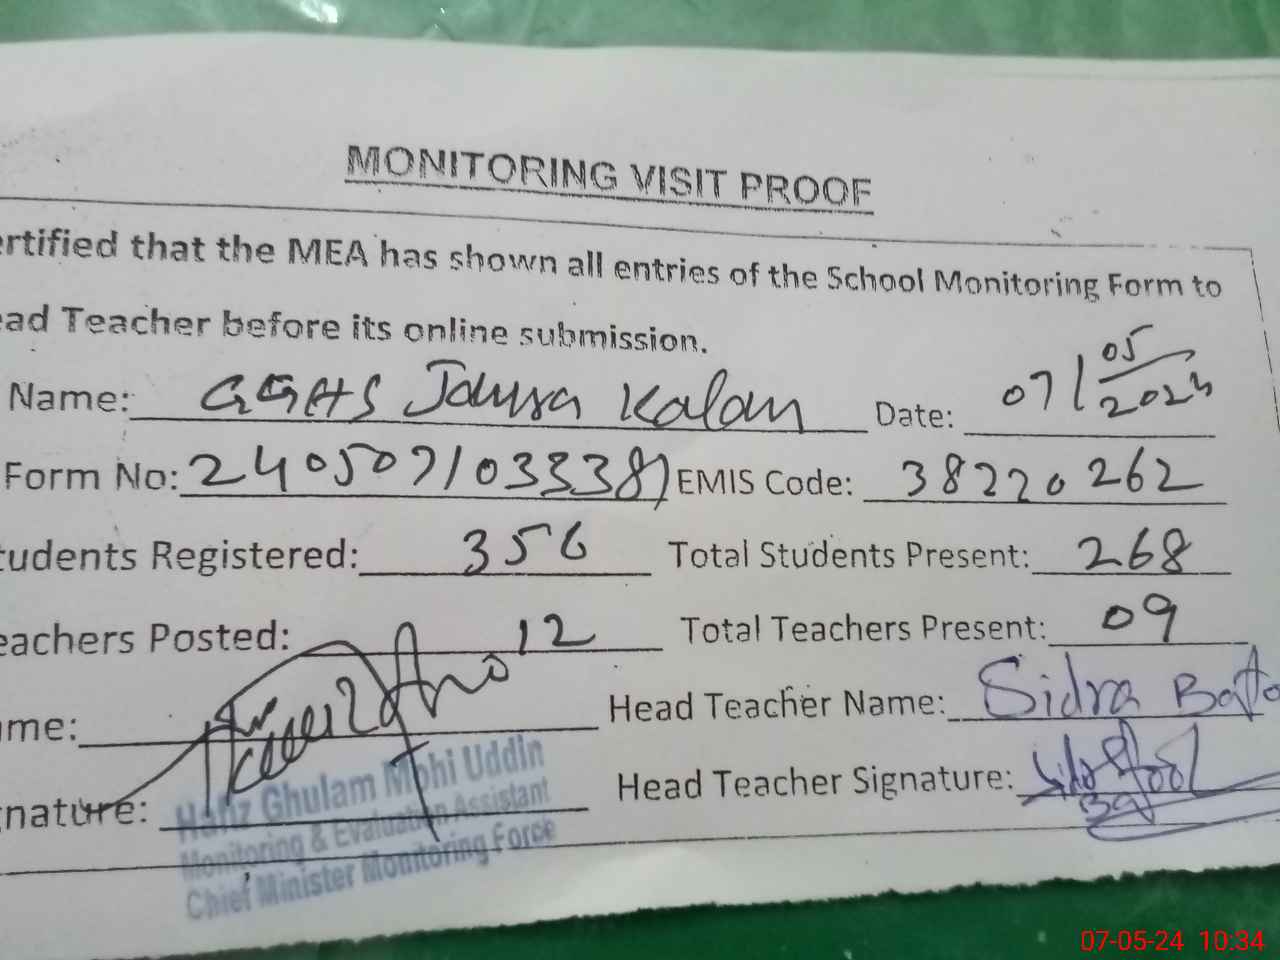 MONITORING VISIT PROOF
ertified that the MEA has shown all entries of the School Monitoring Form to
ead Teacher before its online submission.
Name: GGHS Kalan Date: 07/05/2024
Form No: EMIS Code: 38220262
tudents Registered: 356 Total Students Present: 268
eachers Posted: 12 Total Teachers Present: 09
me: Head Teacher Name: Sidra
gnature: Head Teacher Signature:
Hafiz Ghulam Mohi Uddin
Monitoring & Evaluation Assistant
Chief Minister Monitoring Force
07-05-24 10:34